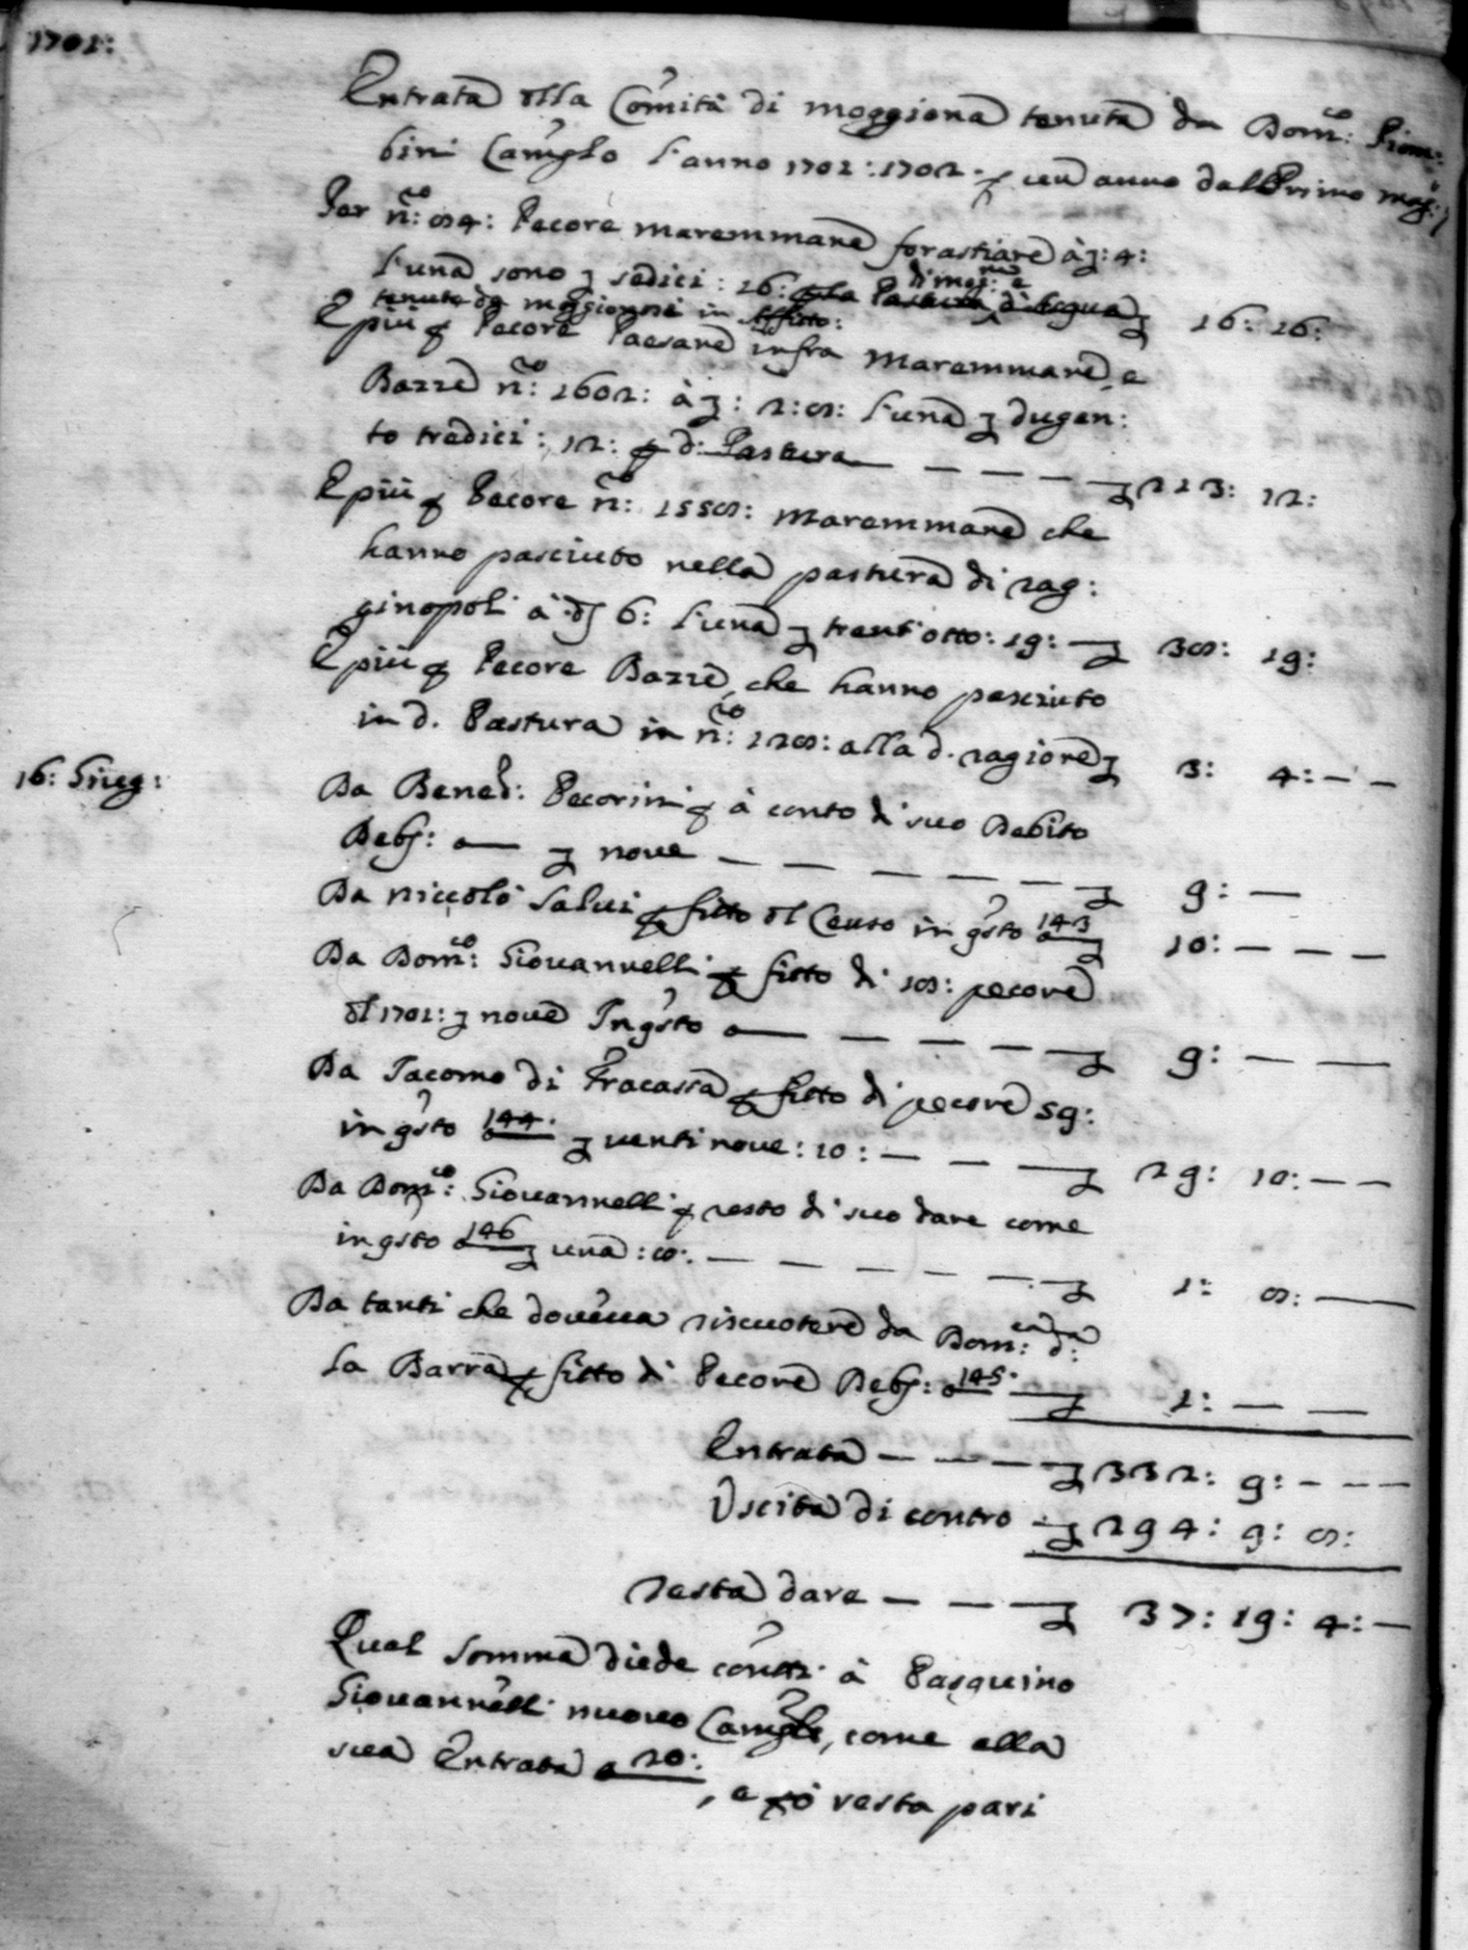 1701:
Entrata della Com̃ità di moggiona tenuta da Dom.co: Piom:
bini Camglo l'anno 1701: 1702. p un anno dal Primo mag:
Per n.ro: 84: Pecore maremmane forastiare à £: 4:
l'una sono £ sedici: 16: Pastura di mog:na e di Acqua £ 16: 16:
tenuta da moggionesi in Affitto:
E più p Pecore Paesane infra Maremmane, e
Bazze n.ro: 1602: à £: 2: 8: l'una £ dugen:
to tredici: 12: p d: Pastura — — — — £ 213: 12:
E più p Pecore n.ro: 1558: Maremmane che
hanno pasciuto nella pastura di rag:
ginopoli à d 6: l'una £ trent'otto: 19: — £ 38: 19:
E più p Pecore Bazze, che hanno pasciuto
in d. Pastura in n.ro: 128: alla d. ragione £ 3: 4: — —
16: Giug:
Da Bened: Pecorini p à conto di suo Debito
Deb: a — £ nove — — — — — — £ 9: —
Da niccolò Salvi p fitto del Censo in gsto a 143 £ 10: — — —
Da Dom.co: Giovannelli p fitto di 18: pecore
del 1701: £ nove In gsto a — — — — £ 9: — —
Da Jacomo di Fracassa p fitto di pecore 59:
in gsto a 144. £ venti nove: 10: — — — £ 29: 10: — —
Da Dom.co: Giovannelli p resto di suo dare come
in gsto a 146 £ una: 8: — — — — — — £ 1: 8: —
Da tanti che doveva riscuotere da Dom.ca: d.a:
la Barra p fitto di Pecore Deb: a 145. — £ 1: — —
Entrata — — — £ 332: 9: — — —
Uscita di contro — £ 294: 9: 8:
resta dare — — — £ 37: 19: 4: —
Qual somma diede contti à Pasquino
Giovannelli nuovo Camglo, come alla
sua Entrata a 20:, e pò resta pari